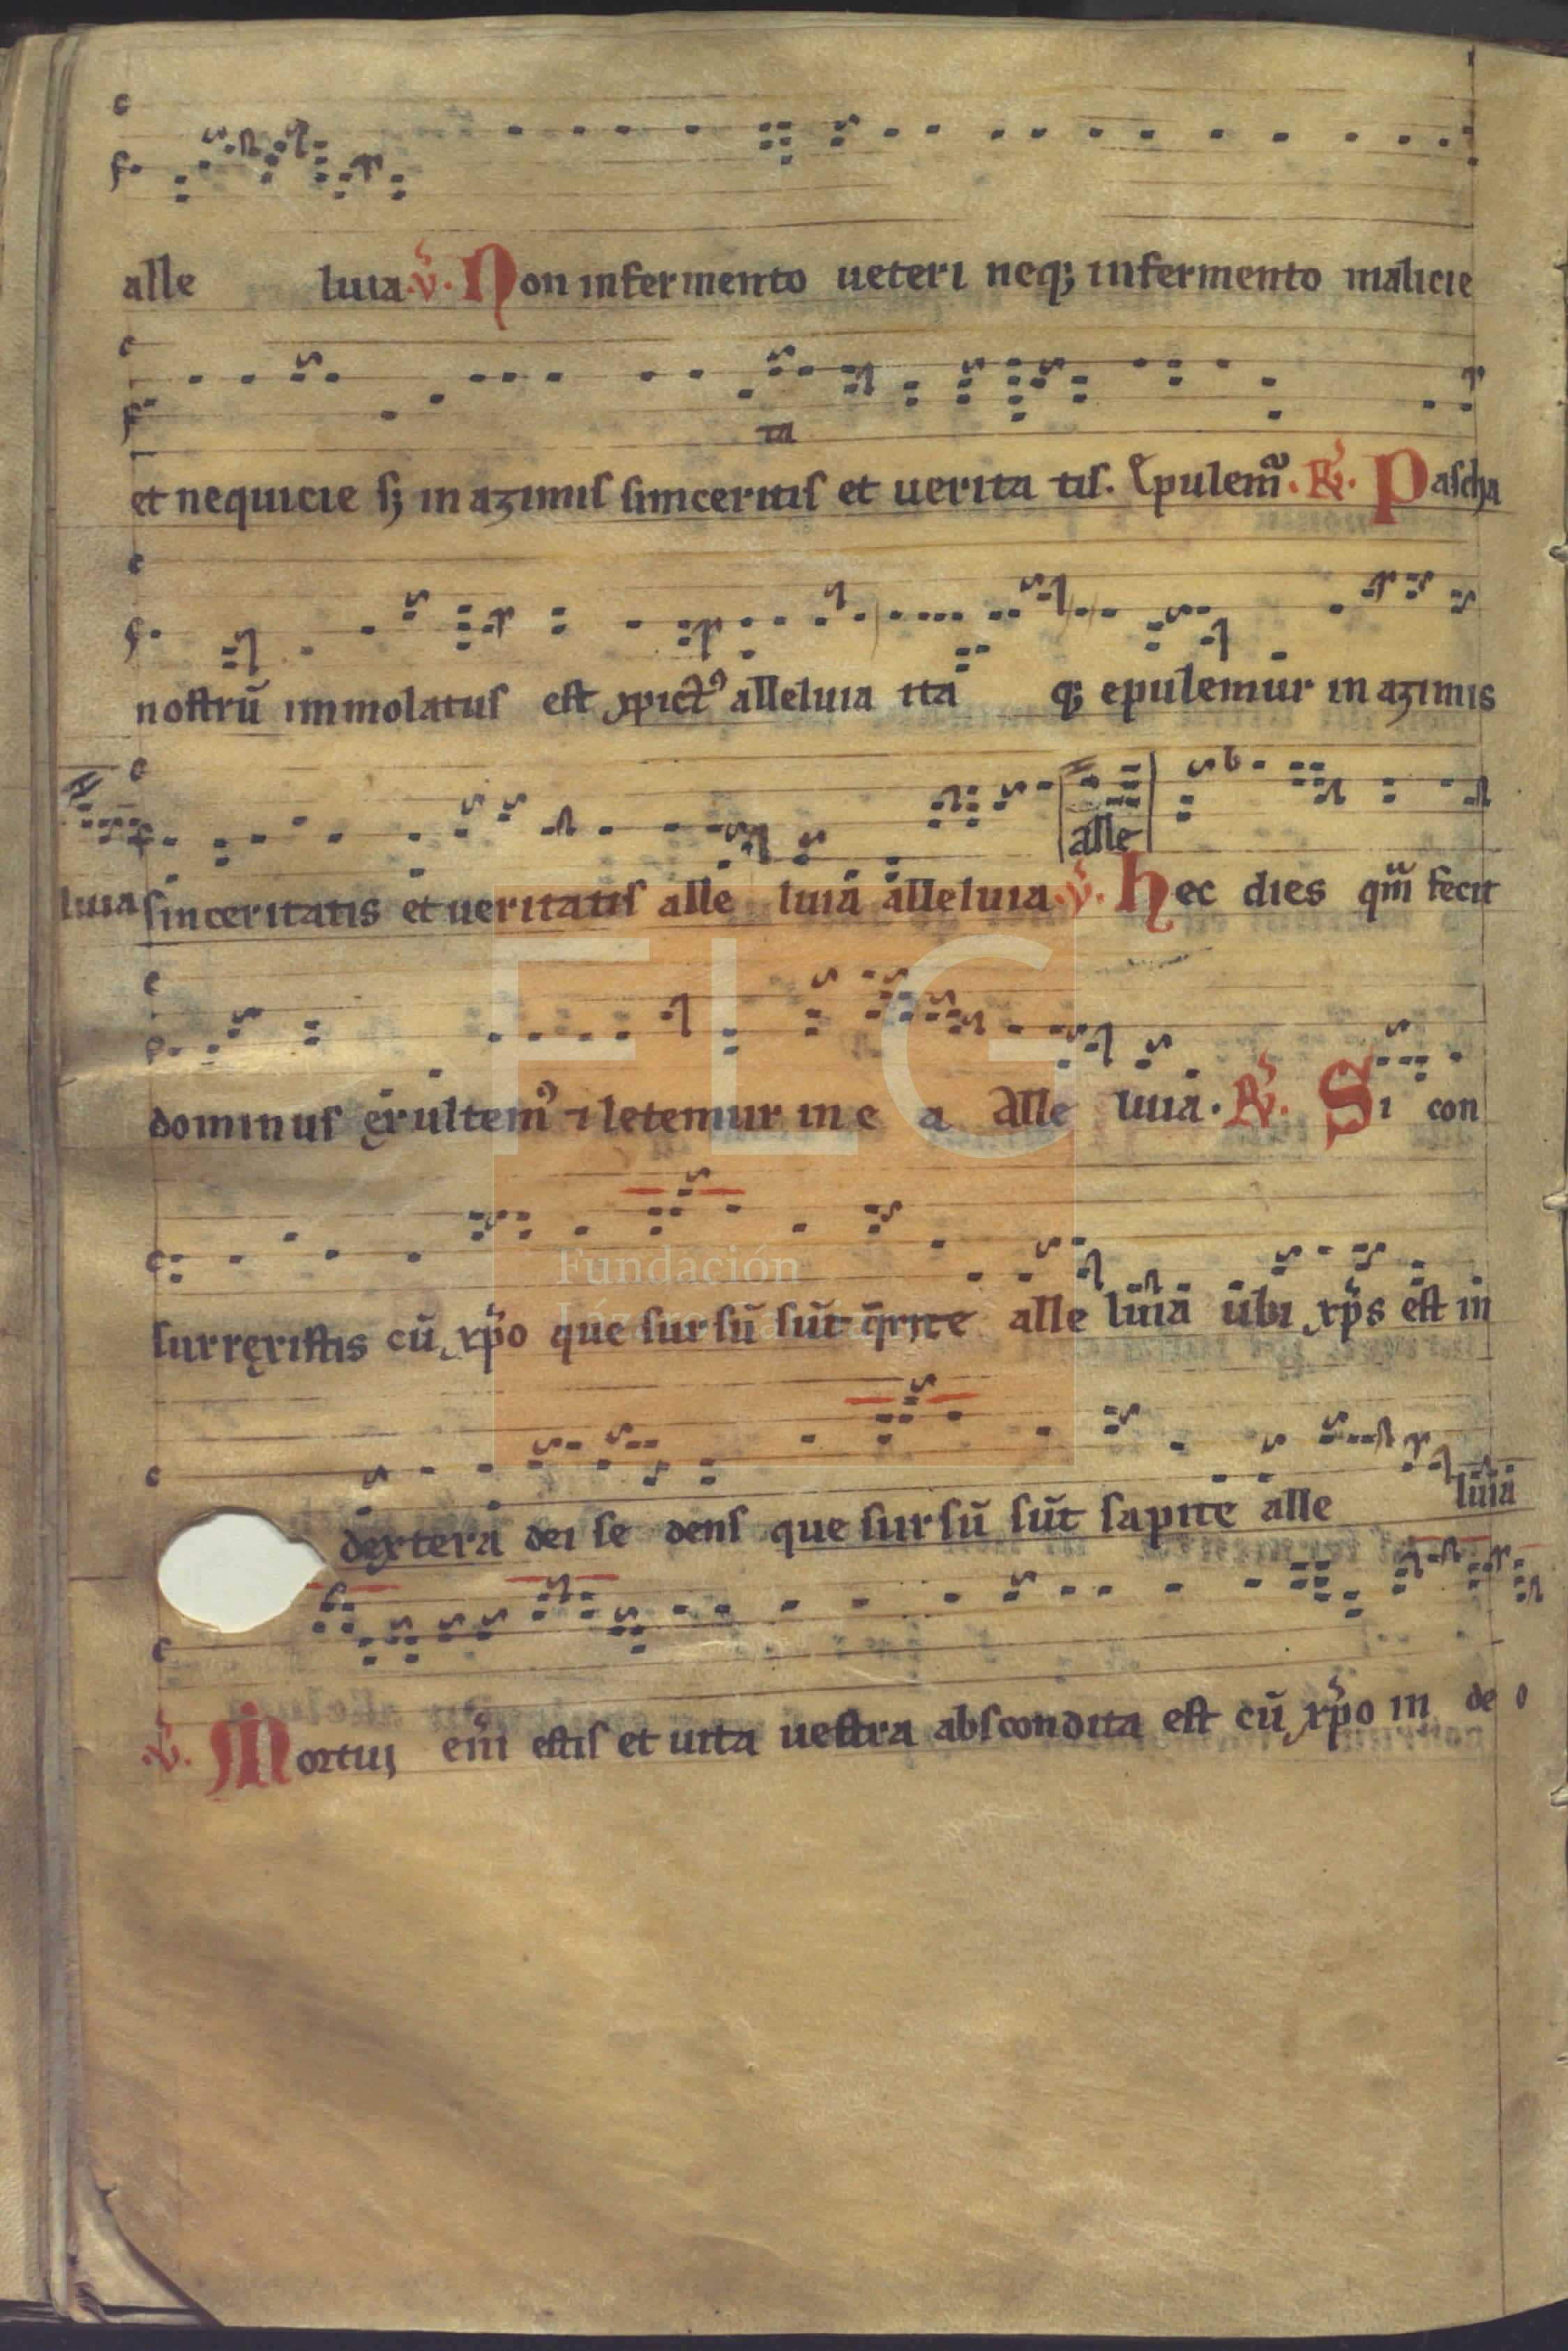 alle luia. ℣. Non in fermento ueteri neq; in fermento malicie
ta
et nequicie s; in azimis sinceritis et uerita tis. Epulem̃. R̃. Pascha
nostrū immolatus est xpict᷒ alleluia ita q; epulemur in azimis
alle
luia sinceritatis et ueritatis alle luia alleluia. ℣. hec dies qm̄ fecit
dominus exultem᷒ ⁊ letemur in e a Alle luia. R̃. Si con
surrexistis cū xp̄o que sursū sūt q̄rite alle luia ubi xp̄s est in
dextera dei se dens que sursū sūt sapite alle luia
℣. Mortui eni̇̄ estis et uita uestra abscondita est cū xp̄o in de o
FLG
Fundación